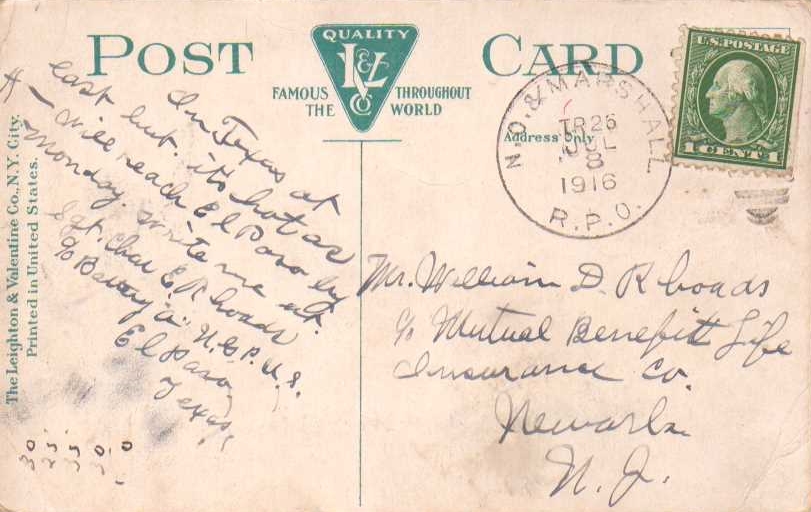 POST CARD
QUALITY
L&V
CO
FAMOUS THROUGHOUT
THE WORLD
Address Only
N.O. & MARSHALL
TR 26
JUL
8
1916
R.P.O.
U.S. POSTAGE
1 CENT 1
The Leighton & Valentine Co., N.Y. City.
Printed in United States.
In Texas at
last but it's hot as
H— will reach El Paso by
Monday write me at.
Sgt. Chas E. Rhoads
c/o Battery "A" N.G.P. U.S.
El Paso,
Texas,
Mr. William D. Rhoads
c/o Mutual Benefit Life
Insurance Co.
Newark
N. J.